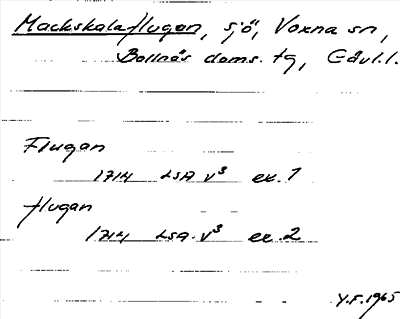 Mackskalaflugan, sjö, Voxna sn,
Bollnäs doms. tg, Gävl.l.
Flugan
1714 LSA V³ ex. 1
flugan
1714 LSA. V³ ex. 2
Y.F. 1965